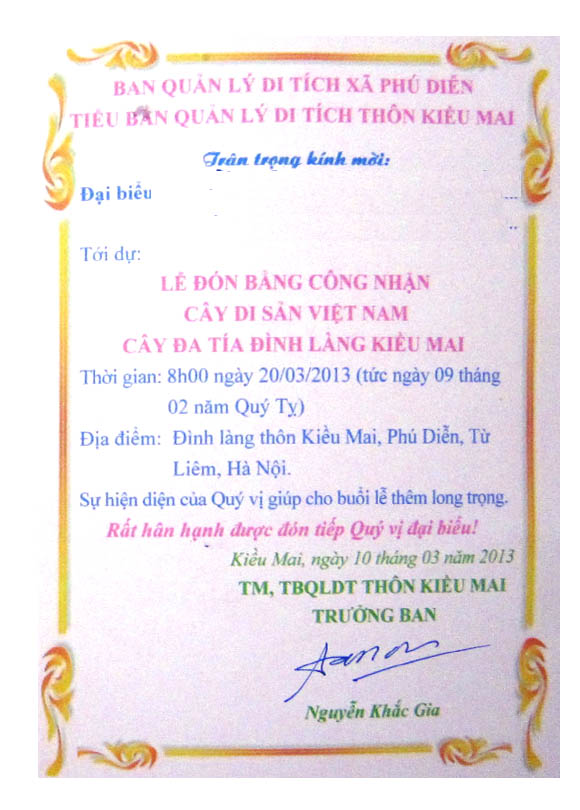 BAN QUẢN LÝ DI TÍCH XÃ PHÚ DIỄN
TIỂU BAN QUẢN LÝ DI TÍCH THÔN KIỀU MAI
Trân trọng kính mời:
Đại biểu
Tới dự:
LỄ ĐÓN BẰNG CÔNG NHẬN
CÂY DI SẢN VIỆT NAM
CÂY ĐA TÍA ĐÌNH LÀNG KIỀU MAI
Thời gian: 8h00 ngày 20/03/2013 (tức ngày 09 tháng
02 năm Quý Tỵ)
Địa điểm: Đình làng thôn Kiều Mai, Phú Diễn, Từ
Liêm, Hà Nội.
Sự hiện diện của Quý vị giúp cho buổi lễ thêm long trọng.
Rất hân hạnh được đón tiếp Quý vị đại biểu!
Kiều Mai, ngày 10 tháng 03 năm 2013
TM, TBQLDT THÔN KIỀU MAI
TRƯỞNG BAN
Nguyễn Khắc Gia